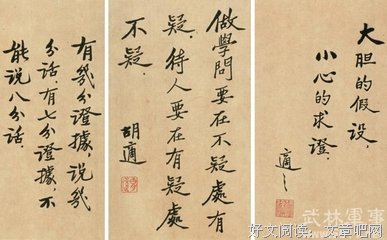 大胆的假设
小心的求證.
適之
做學問要在不疑處有
疑.待人要在有疑處
不疑.
胡適
有幾分證據,說幾
分話.有七分證據,不
能说八分話.
武林軍事
好文阅读,文章吧网